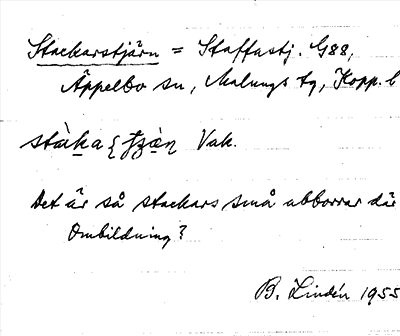 Stackarstjärn = Staffastj. G88,
Äppelbo sn, Malungs tg, Kopp. l
Vak.
Det är så stackars små abborrar där
Ombildning?
B. Lindén 1955